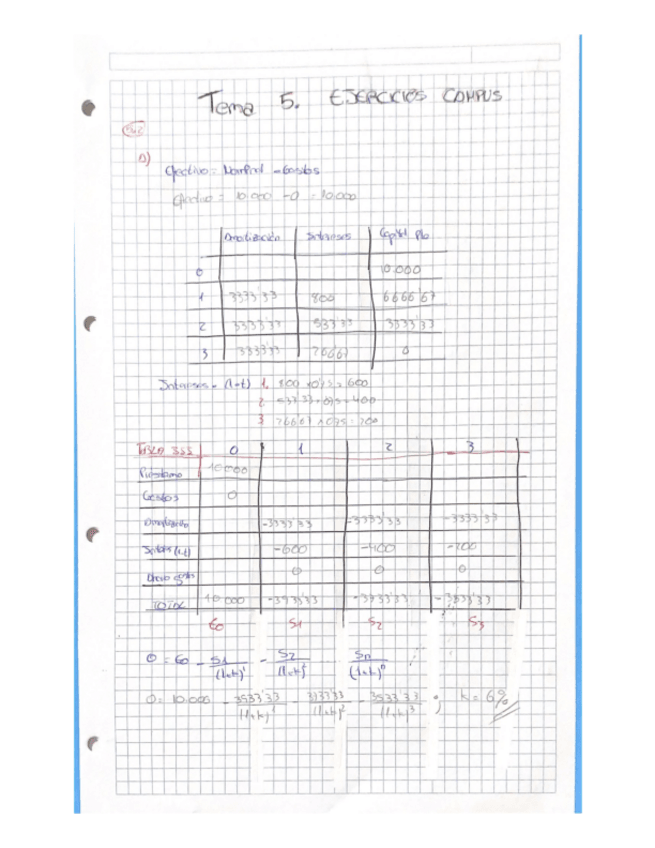 Tema 5. EJERCICIOS CAMPUS
1)
Efectivo = Nominal - Gastos
Efectivo = 10.000 - 0 = 10.000
Amortización Intereses Capital Pte
0 10.000
1 3333'33 800 6666'67
2 3333'33 533'33 3333'33
3 3333'33 266'67 0
Intereses = (1-t) 1. 800 x 0'75 = 600
2. 533'33 x 0'75 = 400
3. 266'67 x 0'75 = 200
0 1 2 3
Préstamo 10.000
Gastos 0
Amortización -3333'33 -3333'33 -3333'33
Intereses (1-t) -600 -400 -200
Ahorro gastos 0 0 0
TOTAL 10.000 -3933'33 -3733'33 -3533'33
E0 S1 S2 S3
0 = E0 - S1/(1+k)¹ - S2/(1+k)² Sn/(1+k)ⁿ
0 = 10.000 - /(1+k)¹ - /(1+k)² - 3533'33/(1+k)³ ; k = 6%